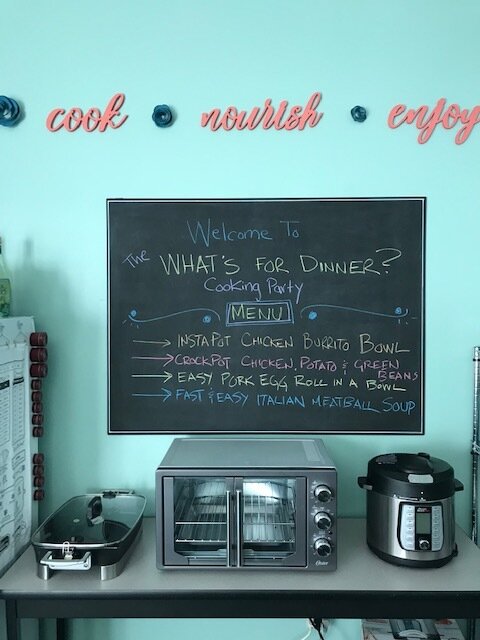 cook nourish enjoy
Welcome To
The WHAT'S FOR DINNER?
Cooking Party
MENU
→ INSTAPOT CHICKEN BURRITO BOWL
→ CROCKPOT CHICKEN, POTATO & GREEN
BEANS
→ EASY PORK EGG ROLL IN A BOWL
→ FAST & EASY ITALIAN MEATBALL SOUP
Oster